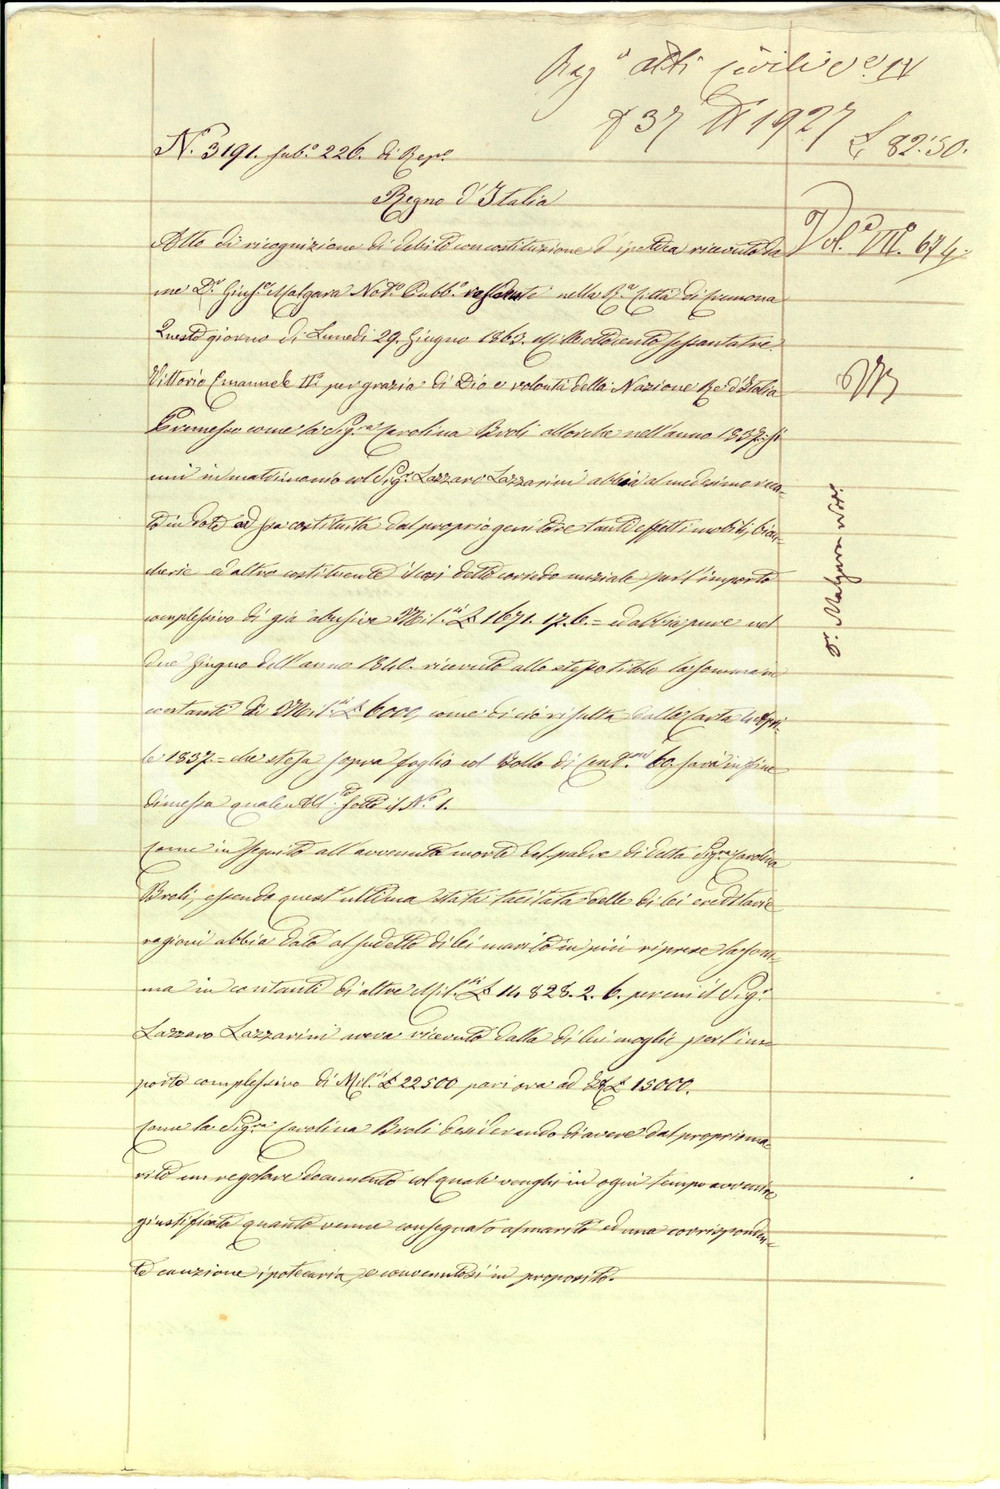 Reg° atti civili Vol IV
f 37 N 1927 £ 82:50.
N.° 3191. sub.° 226. di Rep.°
Regno d'Italia
Atto di ricognizione di debito con costituzione d'ipoteca ricevuto da
Vol.e VII.° 674
me D.r Gius.e Malgara Not.o Pubb.o residente nella R.a Città di Cremona
Questo giorno di Lunedì 29. Giugno 1863. Milleottocento sessantatre.
Vittorio Emanuele II.° per grazia di Dio e volontà della Nazione Re d'Italia
Premesso come la Sig.ra Carolina Broli allorchè nell'anno 1837. si
unì in matrimonio col Sig.r Lazzaro Lazzarini abbia al medesimo reca-
to in dote ad essa costituita dal proprio genitore tanti effetti mobili, bian-
cherie ed altro costituente il così detto corredo nuziale per l'importo
complessivo di già abusive Mil.si £ 1671. 17. 6. = ed abbia pure nel
due Giugno dell'anno 1840. ricevuto allo stesso titolo la somma in
contanti di Mil.si £ 6000, come di ciò risulta dalla Carta 4 Apri-
le 1837. = che stesa sopra foglio col Bollo di Cent.mi 60. sarà in fine
dimessa quale All.to sotto il N.° 1.
Come in seguito all'avvenuta morte del padre di detta Sig.ra Carolina
Broli, essendo quest'ultima stata tacitata delle di lei ereditarie
ragioni abbia dato al sudetto di lei marito in più riprese la som-
ma in contanti di altre Mil.si £ 14828. 2. 6. per cui il Sig.r
Lazzaro Lazzarini aveva ricevuto dalla di lui moglie per l'im-
porto complessivo di Mil.si £ 22500 pari ora ad £ 15000.
Come la Sig.ra Carolina Broli desiderando di avere dal proprio ma-
rito un regolare documento col quale venghi in ogni tempo avvenire
giustificato quanto venne consegnato al marito ed una corrisponden-
te cauzione ipotecaria, e convenutosi in proposito.
D.r Malgara Not.